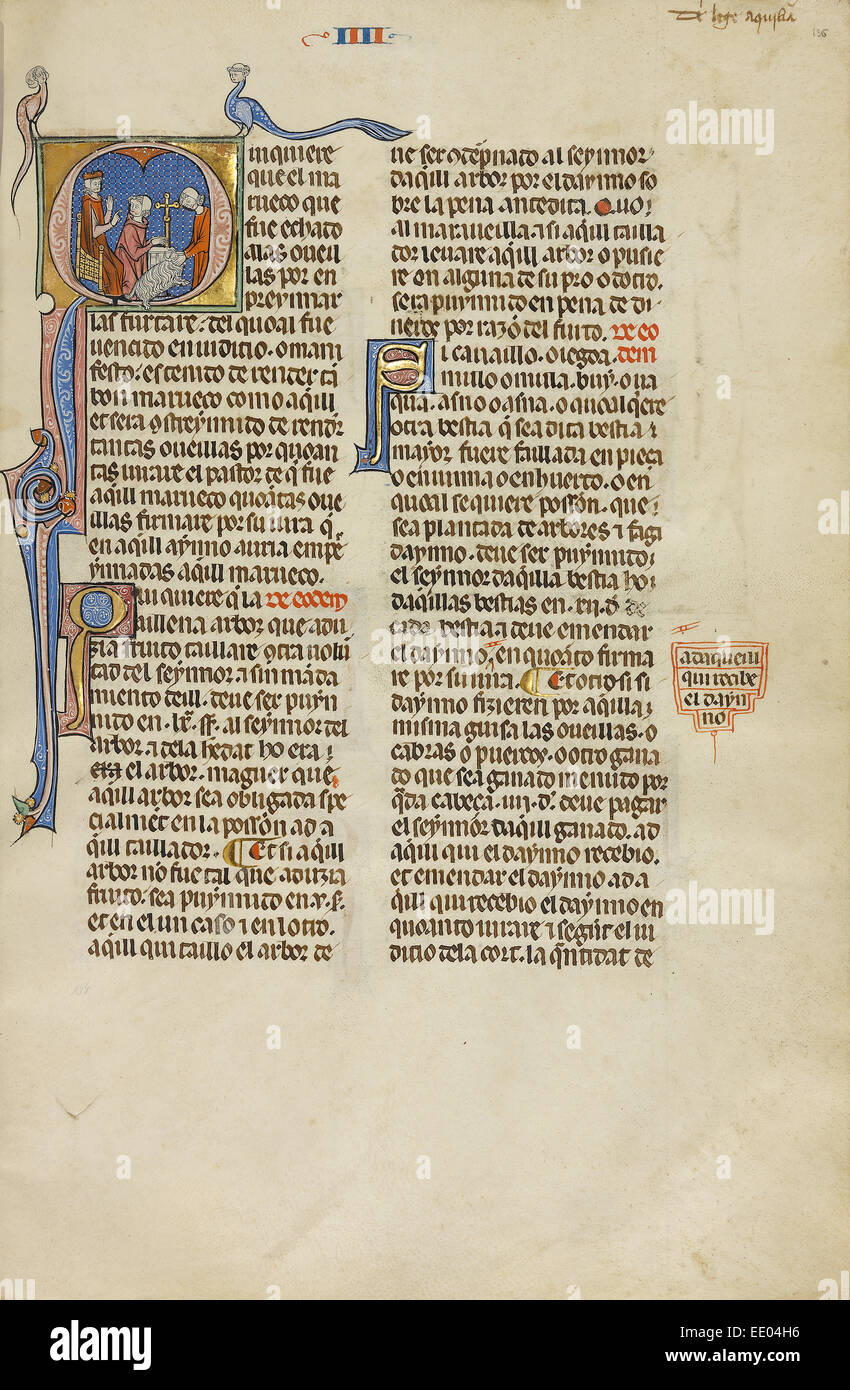 De lege aquilia
IIII
136
Quinquiere
que el ma
rueco que
fue echado
alas oueil
las por en
preynnar
las furtare· del quoal fue
uencido en iudicio· o mani
fiesto· es tenido de render ti
bon marueco como aqill
et sera costreynnido de rendr
tantas oueillas por quoan
tas iurare el pastor de q̄ fue
aqill marueco quoātas oue
illas firmare por su iura q̄
en aqill aynno auria empe
ynnadas aqill marueco.
Qui quiere q̄ la De eodem
aillena arbor que adu
zia fruito tailare cōtra uolū
tad del seynnor a sin māda
miento deill· deue ser puyn
nido en· lx· ss· al seynnor del
arbor a dela hedat ho era
el arbor· maguer que
aqill arbor sea obligada spe
cialmēt en la possiōn ad a
qill taillador· Et si aqill
arbor nō fue tal que aduzia
fruito· sea puynnido en·x·s·
et en el un caso ⁊ en lotro·
aqill qui taillo el arbor de
ue ser ɔdēpnado al seynnor
daqill arbor por el daynno so
bre la pena antedita· Quo
al maraueilla asi aqill tailla
dor leuare aqill arbor o pusie
re en alguna de su pro o dotro·
sera puynnido en pena de di
uerse por razō del fruito· De eo
Si cauaillo· o iegoa· dem
mullo o mulla· buy· o ua
qua· asno o asna· o quoal q̄ere
otra bestia q̄ sea dita bestia
mayor fuere faillada en pieça
o en uinna o en huerto· o en
quoal se quiere possiōn· que
sea plantada de arbores ⁊ fagā
daynno· deue ser puynnido
el seynnor daqilla bestia ho
daqillas bestias en·
cada bestia ⁊ deue emendar
el daynno, en quoāto firma
re por su iura· Et otro si si
daynno fizieren por aqilla
misma guisa las oueillas· o
cabras o puercos· o otro gana
do que sea ganado menudo por
q̄da cabeça· iiii· d̄· deue pagar
el seynnor daqill ganado· ad
aqill qui el daynno recebio·
et emendar el daynno ad a
qill qui recebio el daynno en
quoanto iurare ⁊ segūt el iu
dicio dela cort· la q̄ntidat de
ad aqueill
qui recibe
el dayn
no
alamy
Image ID: EE04H6
www.alamy.com